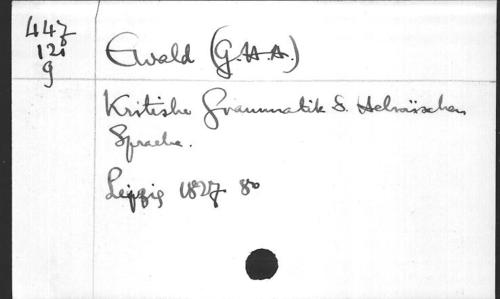 447
120
g
Ewald (G.H.A.)
Kritishe Grammatik d. Hebräischen
Sprache.
Leipzig 1827 8o